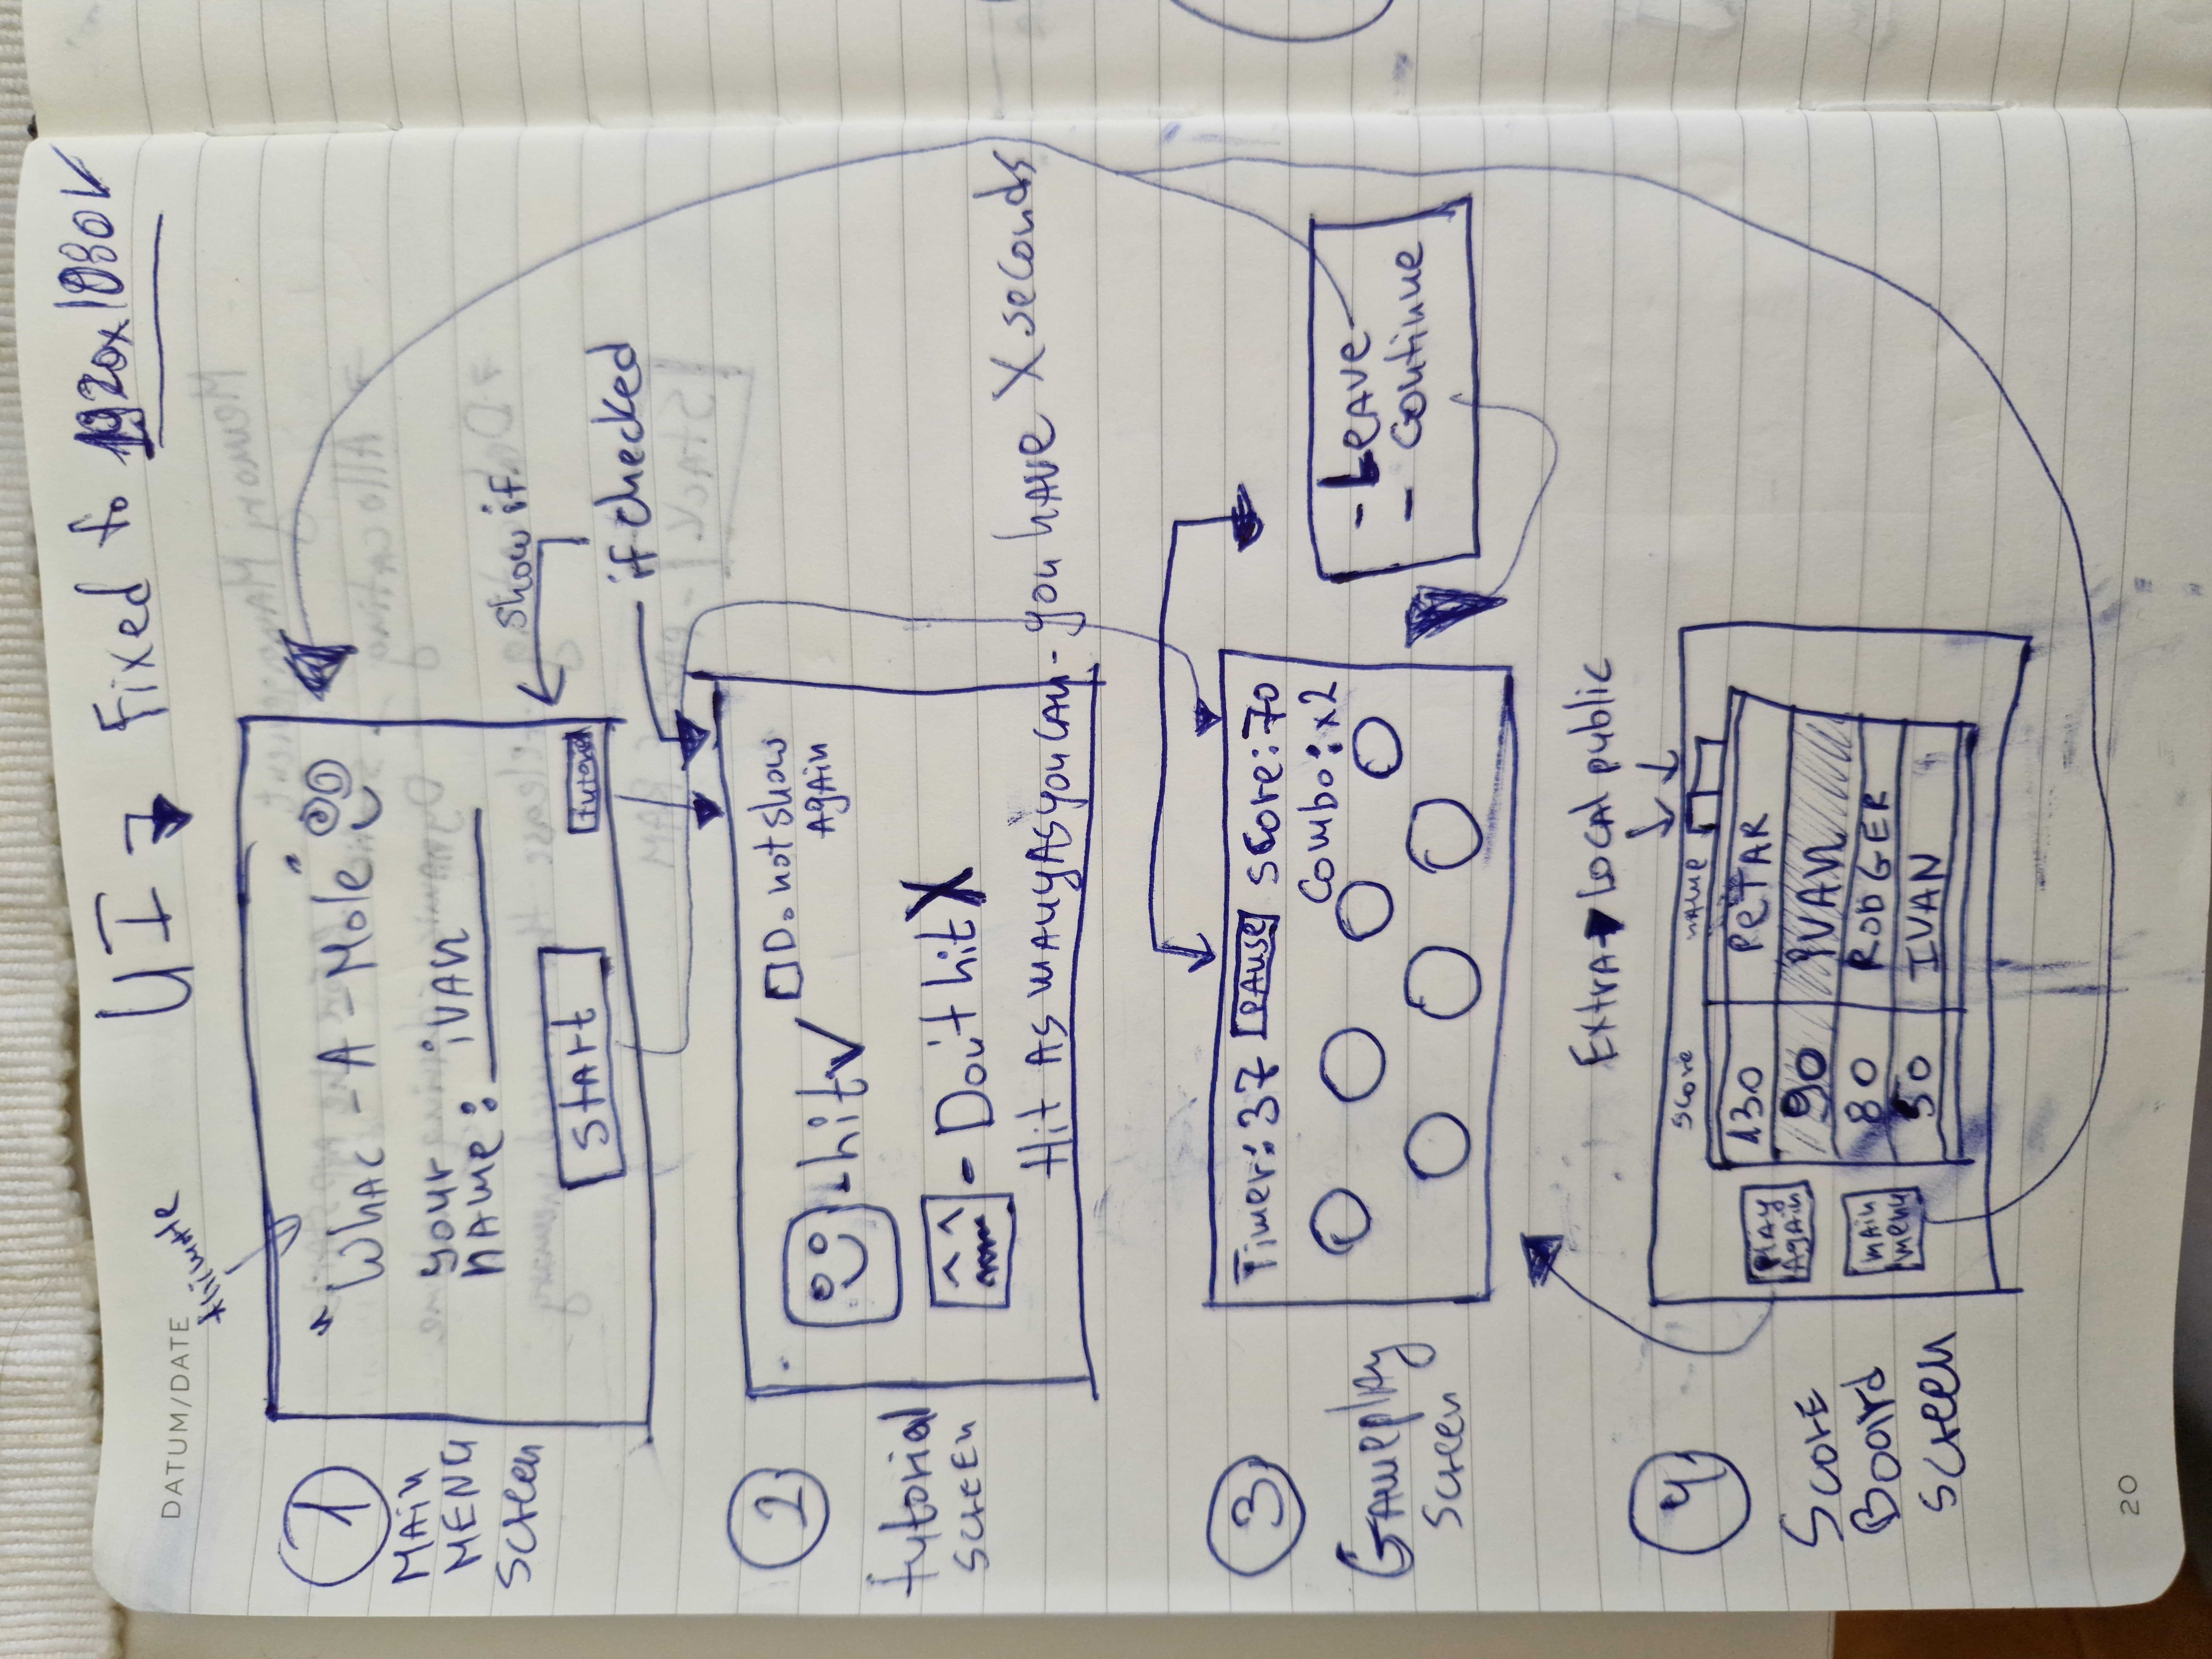 DATUM/DATE
UI → Fixed to 1920x1080
1
MAIN
MENU
Screen
"Whac-A-Mole"
your
name: IVAN
Start
tutorial
show if
if checked
2
tutorial
screen
Do not show
again
- hit ✓
- Don't hit X
Hit as many as you can - you have X seconds
3
Gameplay
Screen
Timer: 37
PAUSE
score: 70
Combo: x2
- Leave
- Continue
Extra → Local public
4
Score
Board
Screen
Play
Again
main
menu
score name
130 PETAR
90 IVAN
80 RODGER
50 IVAN
20